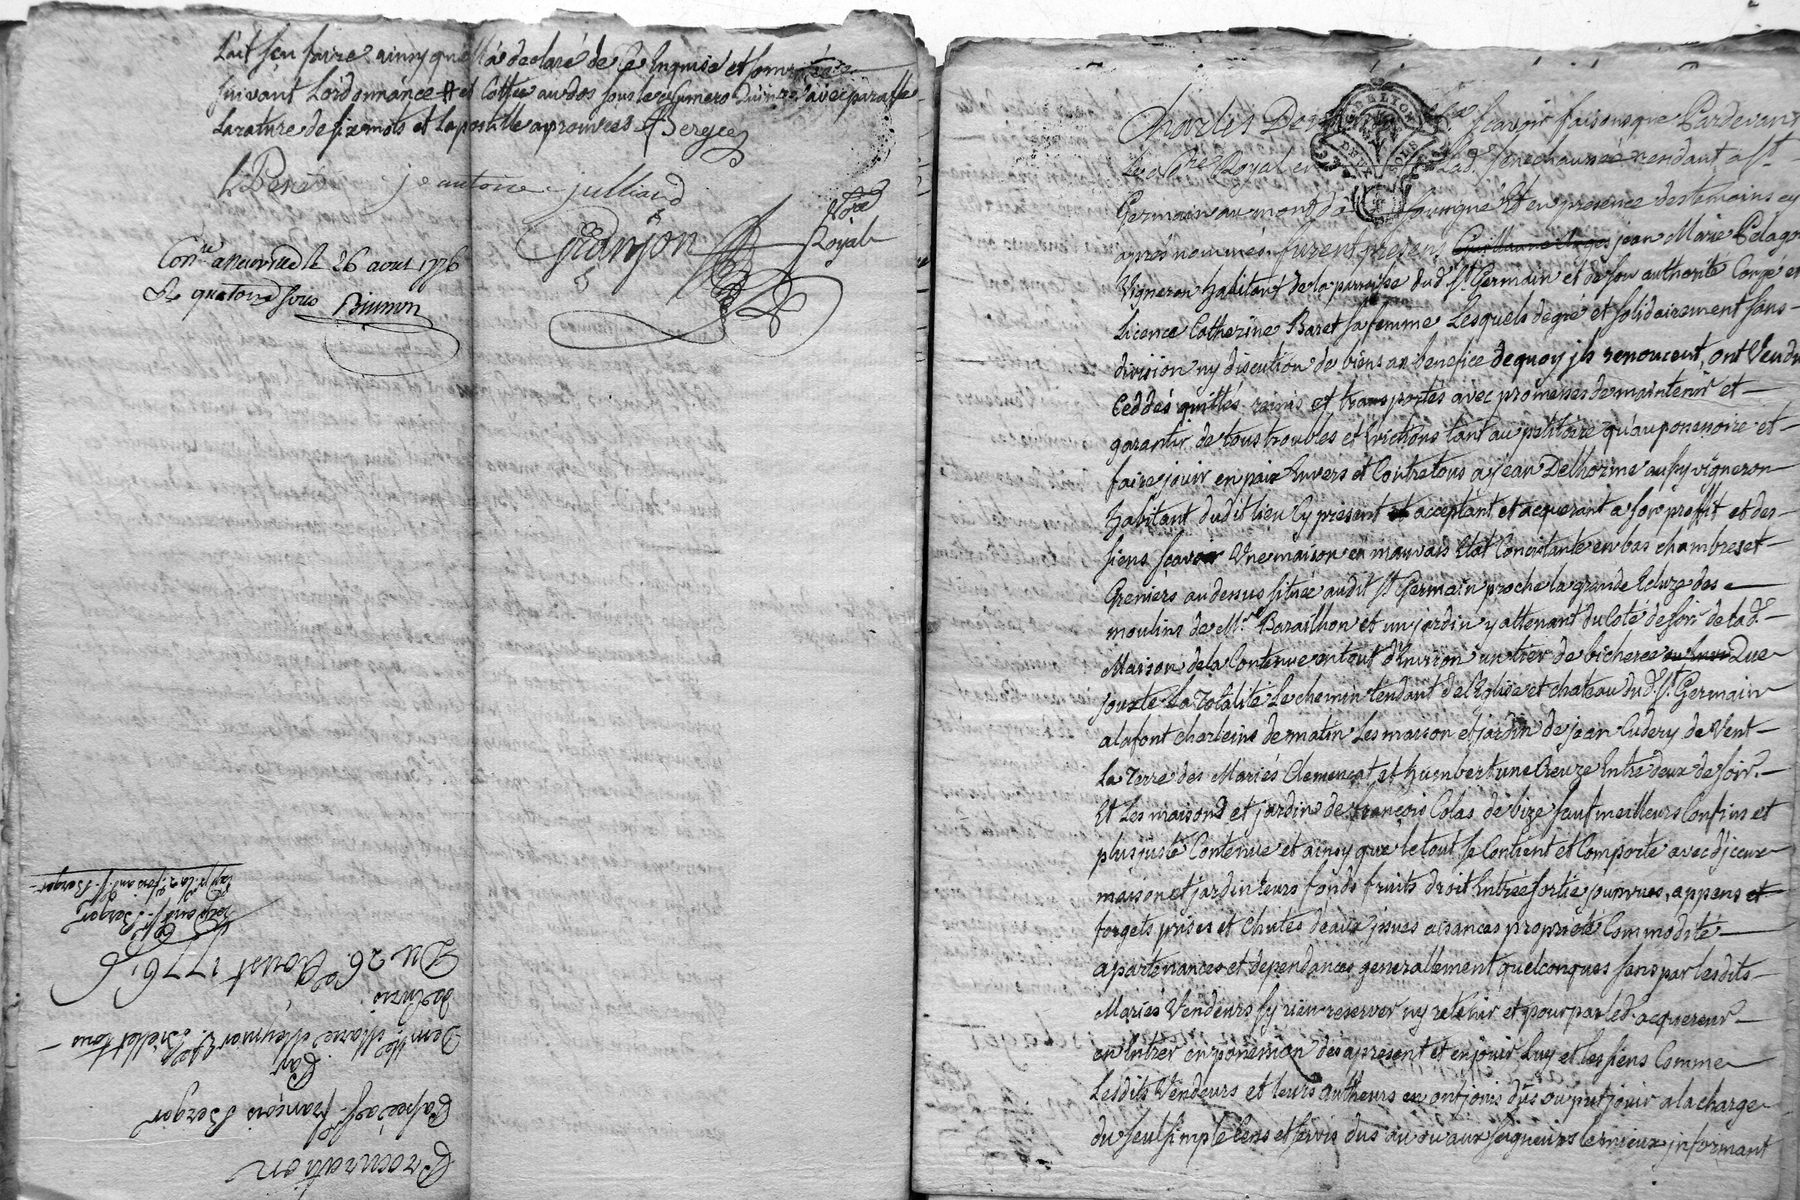 Lait sçu faire ainsy quelle a declaré de ce Enquise et sommée
suivant Lordonnance et Cottée au dos sous le Numero avec paraffe
La rature de six mots et Lapostille aprouvées Berger
L. Peré je antoine julliard
grandjon Nore Royal
Con.lle a neuville le 26 aout 1776
R quatorze sous Binmon
Procuration
Passée a Sr. François Berger
Par
Demlle Marie V.
de
Du 26. Aoust 1776.
Charles De sçavoir faisons que Pardevant
Le Nre Royal en Lad. senechaussée residant a St
Germain au mont d'or soussigné Et en presence des temoins cy
apres nommés furent presens jean Marie Pelagot
Vigneron habitant de la parroisse dud. St Germain et de son authorité Congé et
licence Catherine Baret sa femme Lesquels de gré et solidairement sans
division ny discution de biens au benefice de quoy ils renoncent, ont Vendu
Ceddés quittés remis et transportés avec promesses de maintenir et
garantir de tous troubles et Evictions tant au petitoire qu'au possessoire et
faire jouir en paix Envers et Contre tous a jean Delhorme aussy vigneron
habitant dudit lieu Cy present acceptant et acquerant a son proffit et des
siens sçavoir Une maison en mauvais Etat Consistante en bas chambres et
Greniers au dessus située audit St Germain proche la grande Ecluze des
moulins de Mr. Barailhon et un jardin y attenant du Coté de soir de lad.
Maison de la Contenue en tout d'Environ un tier de bicherée Que
jouxte La Totalité Le chemin tendant de l'Eglise et chateau dud. St Germain
a la font charleins de matin Les maison et jardin de jean Cudery de Vent
La Terre des Mariés Clemençat et humbert une Creuze Entre deux de soir.
Et Les maisons et jardin de françois Colas de bize sauf meilleurs Confins et
plus juste Contenue et ainsy que le tout se Contient et Comporte avec d'iceux
maison et jardin leurs fonds fruits droit Entrée sortie appens et
forgets prises et Chutes d'eaux issues aisances proprieté Commodité
apartenances et dependances generallement quelconques sans par lesdits
Mariés Vendeurs s'y rien reserver ny retenir et pour par led. acquereur
en Entrer en possession des apresent et en jouir Luy et les siens Comme
Lesdits Vendeurs et leurs autheurs en ont jouis dus ou put jouir a la charge
du seul simple Cens et servis dus au ou aux seigneurs le mieux informant